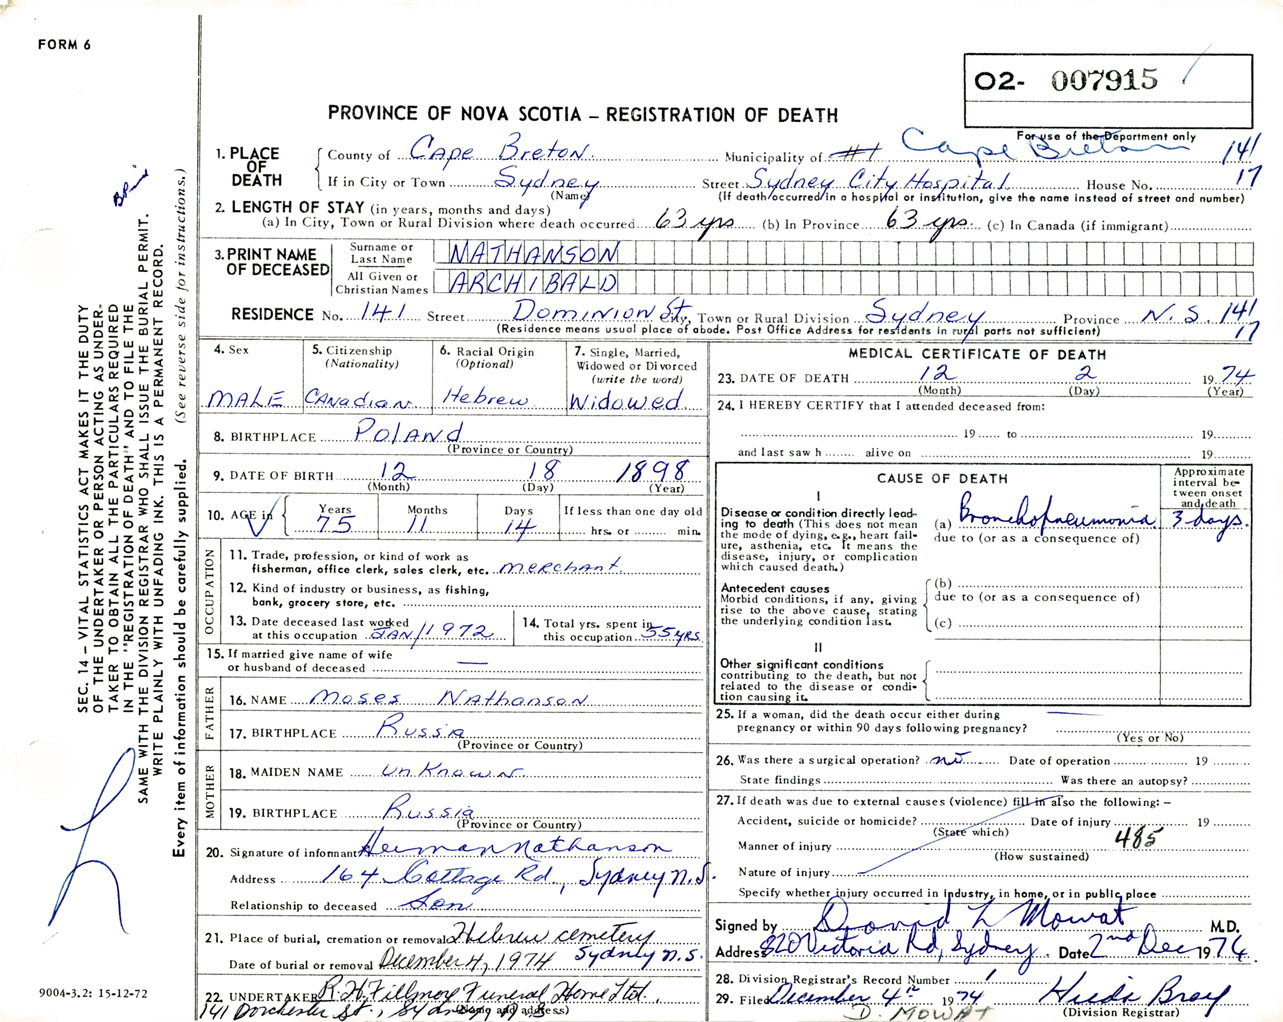 FORM 6
O2- 007915
PROVINCE OF NOVA SCOTIA – REGISTRATION OF DEATH
For use of the Department only
1. PLACE OF DEATH
County of Cape Breton Municipality of #1 Cape Breton 141
If in City or Town Sydney Street Sydney City Hospital House No. 17
(Name) (If death occurred in a hospital or institution, give the name instead of street and number)
2. LENGTH OF STAY (in years, months and days)
(a) In City, Town or Rural Division where death occurred 63 yrs (b) In Province 63 yrs. (c) In Canada (if immigrant)
3. PRINT NAME OF DECEASED
Surname or Last Name NATHANSON
All Given or Christian Names ARCHIBALD
RESIDENCE No. 141 Street Dominion St. City, Town or Rural Division Sydney Province N.S. 141
(Residence means usual place of abode. Post Office Address for residents in rural parts not sufficient) 17
4. Sex
MALE
5. Citizenship
(Nationality)
Canadian
6. Racial Origin
(Optional)
Hebrew
7. Single, Married,
Widowed or Divorced
(write the word)
Widowed
8. BIRTHPLACE POLAND
(Province or Country)
9. DATE OF BIRTH 12 18 1898
(Month) (Day) (Year)
10. AGE in Years Months Days If less than one day old
75 11 14 hrs. or min.
OCCUPATION
11. Trade, profession, or kind of work as
fisherman, office clerk, sales clerk, etc. merchant
12. Kind of industry or business, as fishing,
bank, grocery store, etc.
13. Date deceased last worked
at this occupation JAN/1972
14. Total yrs. spent in
this occupation 55 YRS.
15. If married give name of wife
or husband of deceased —
FATHER
16. NAME Moses Nathanson
17. BIRTHPLACE Russia
(Province or Country)
MOTHER
18. MAIDEN NAME unknown
19. BIRTHPLACE Russia
(Province or Country)
20. Signature of informant Herman Nathanson
Address 164 Cottage Rd., Sydney N.S.
Relationship to deceased Son
21. Place of burial, cremation or removal Hebrew cemetery
Date of burial or removal December 4, 1974 Sydney N.S.
22. UNDERTAKER R.H. Fillmore Funeral Home Ltd.
141 Dorchester St., Sydney N.S. (Name and address)
MEDICAL CERTIFICATE OF DEATH
23. DATE OF DEATH 12 2 1974
(Month) (Day) (Year)
24. I HEREBY CERTIFY that I attended deceased from:
19 to 19
and last saw h alive on 19
CAUSE OF DEATH
Approximate
interval be-
tween onset
and death
I
Disease or condition directly lead-
ing to death (This does not mean
the mode of dying, e.g., heart fail-
ure, asthenia, etc. It means the
disease, injury, or complication
which caused death.)
(a) Bronchopneumonia 3 days.
due to (or as a consequence of)
Antecedent causes
Morbid conditions, if any, giving
rise to the above cause, stating
the underlying condition last.
(b)
due to (or as a consequence of)
(c)
II
Other significant conditions
contributing to the death, but not
related to the disease or condi-
tion causing it.
25. If a woman, did the death occur either during —
pregnancy or within 90 days following pregnancy?
(Yes or No)
26. Was there a surgical operation? no Date of operation 19
State findings Was there an autopsy?
27. If death was due to external causes (violence) fill in also the following: –
Accident, suicide or homicide? Date of injury 19
(State which) 485
Manner of injury
(How sustained)
Nature of injury
Specify whether injury occurred in Industry, in home, or in public place
Signed by David L Mowat M.D.
Address 820 Victoria Rd, Sydney Date 2nd Dec 1974.
28. Division Registrar's Record Number
29. Filed December 4th 1974
D. MOWAT (Division Registrar)
SEC. 14 – VITAL STATISTICS ACT MAKES IT THE DUTY
OF THE UNDERTAKER OR PERSON ACTING AS UNDER-
TAKER TO OBTAIN ALL THE PARTICULARS REQUIRED
IN THE "REGISTRATION OF DEATH" AND TO FILE THE
SAME WITH THE DIVISION REGISTRAR WHO SHALL ISSUE THE BURIAL PERMIT.
WRITE PLAINLY WITH UNFADING INK. THIS IS A PERMANENT RECORD.
Every item of information should be carefully supplied. (See reverse side for instructions.)
9004-3.2: 15-12-72